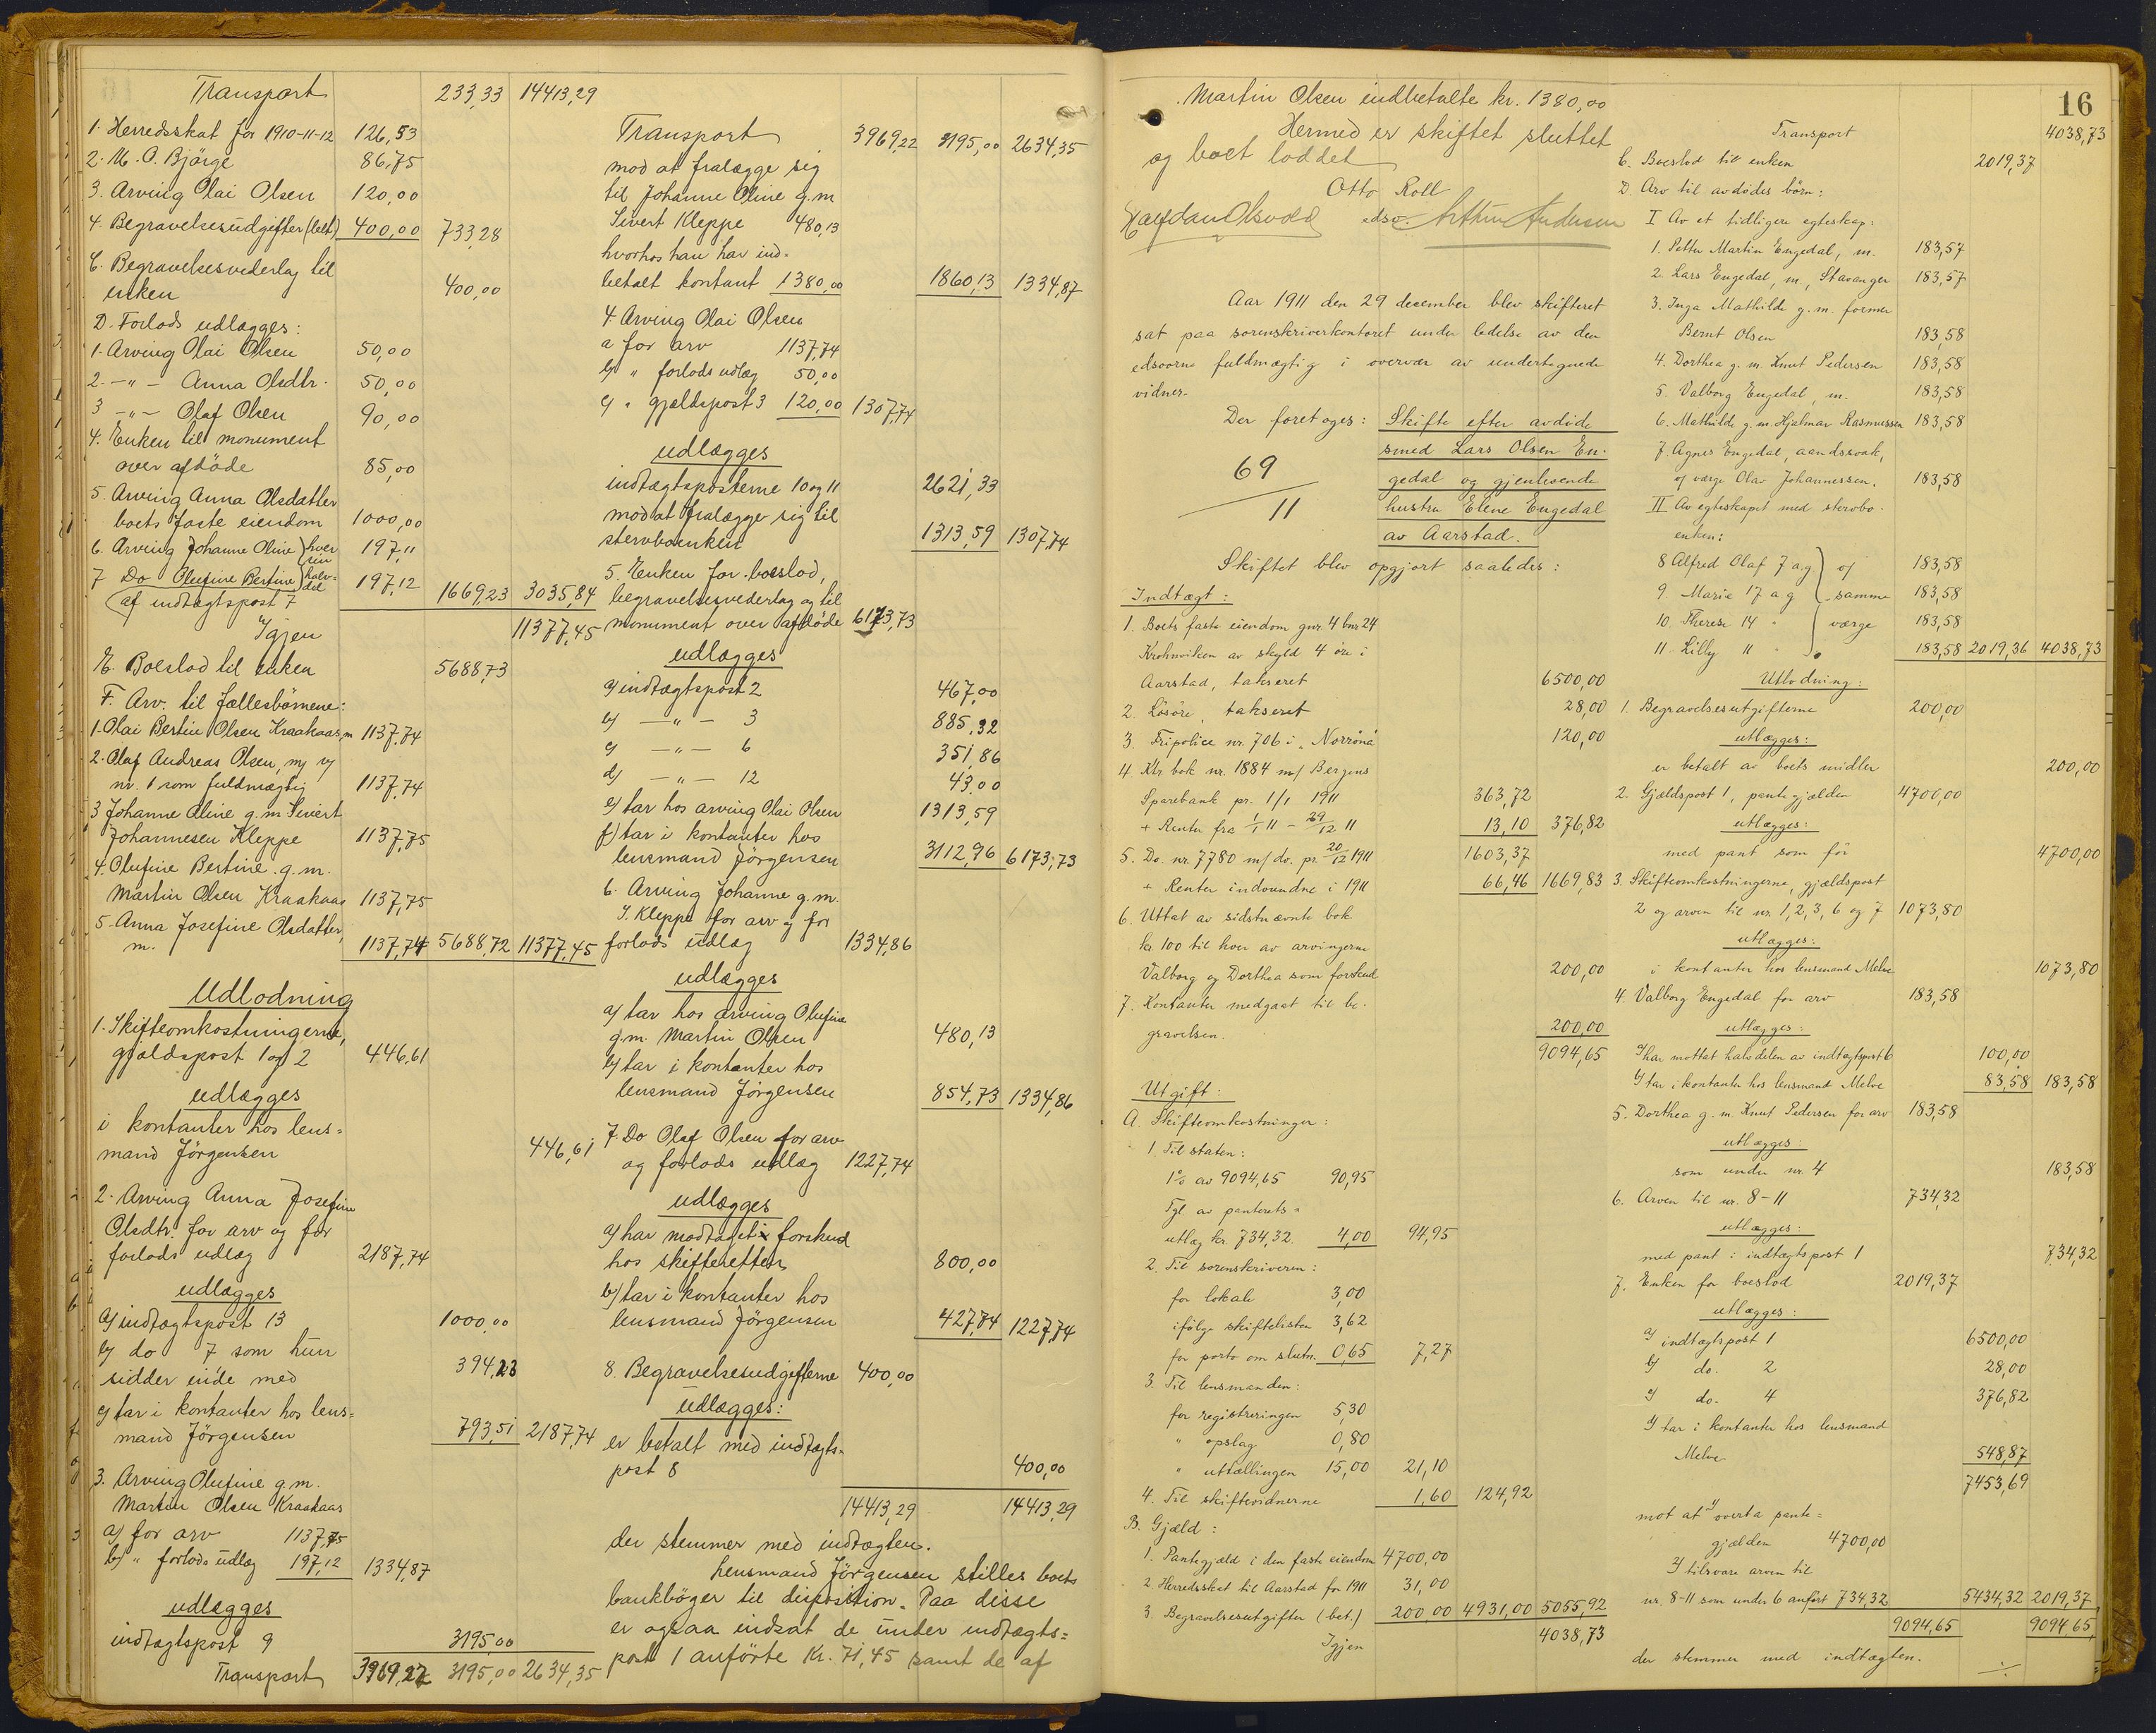 Transport 233,33 14413,29
1. Herredsskat for 1910-11-12 126,53
2. M. O. Bjørge 86,75
3. Arving Olai Olsen 120,00
4. Begravelsesudgifter (bet.) 400,00 733,28
C. Begravelsesvederlag til
enken 400,00
D. Forlods udlægges:
1. Arving Olai Olsen 50,00
2. -"- Anna Olsdtr. 50,00
3 -"- Olaf Olsen 90,00
4. Enken til monument
over afdøde 85,00
5. Arving Anna Olsdatter
boets faste eiendom 1000,00
6. Arving Johanne Oline } hver 197,11
sin
7 Do Olufine Bertine } halv- 197,12 1669,23 3035,84
del
af indtægtspost 7
Igjen 11377,45
E. Boeslod til enken 5688,73
F. Arv. til fællesbørnene:
1. Olai Bertin Olsen Kraakaas, m 1137,74
2. Olaf Andreas Olsen, m, v/
nr. 1 som fuldmægtig 1137,74
3 Johanne Oline g.m. Sivert
Johannesen Kleppe 1137,75
4. Olufine Bertine g.m.
Martin Olsen Kraakaas 1137,75
5. Anna Josefine Olsdatter,
m. 1137,74 5688,72 11377,45
Udlodning
1. Skifteomkostningerne,
gjældspost 1 og 2 446,61
udlægges
i kontanter hos lens=
mand Jörgensen 446,61
2. Arving Anna Josefine
Olsdtr. for arv og for
forlods udlæg 2187,74
udlægges
a/ indtægtspost 13 1000,00
b/ do 7 som hun
sidder inde med 394,23
c/ tar i kontanter hos lens=
mand Jörgensen 793,51 2187,74
3. Arving Olufine g.m.
Martin Olsen Kraakaas
a/ for arv 1137,75
b/ " forlods udlæg 197,12 1334,87
udlægges
indtægtspost 9 3195,00
Transport 3969,22 3195,00 2634,35
Transport 3969,22 3195,00 2634,35
mod at fralægge sig
til Johanne Oline g.m.
Sivert Kleppe 480,13
hvorhos han har ind=
betalt kontant 1380,00 1860,13 1334,87
4. Arving Olai Olsen
a for arv 1137,74
b/ " forlods udlæg 50,00
c/ " gjældspost 3 120,00 1307,74
udlægges
indtægtsposterne 10 og 11 2621,33
mod at fralægge sig til
stervboenken 1313,59 1307,74
5. Enken for boeslod,
begravelsesvederlag og til
monument over afdøde 6173,73
udlægges
a/ indtægtspost 2 467,00
b/ -"- 3 885,32
c/ -"- 6 351,86
d/ -"- 12 43,00
e/ tar hos arving Olai Olsen 1313,59
f/ tar i kontanter hos
lensmand Jörgensen 3112,96 6173,73
6. Arving Johanne g.m.
S. Kleppe for arv og for
forlods udlæg 1334,86
udlægges
a/ tar hos arving Olufine
g.m. Martin Olsen 480,13
b/ tar i kontanter hos
lensmand Jörgensen 854,73 1334,86
7. Do Olaf Olsen for arv
og forlods udlæg 1227,74
udlægges
a/ har modtaget i forskud
hos skifteretten 800,00
b/ tar i kontanter hos
lensmand Jörgensen 427,74 1227,74
8. Begravelsesudgifterne 400,00
udlægges:
er betalt med indtægts=
post 8 400,00
14413,29 14413,29
der stemmer med indtægten.
Lensmand Jörgensen stilles boets
bankbøger til disposition. Paa disse
er ogsaa indsat de under indtægts=
post 1 anførte Kr. 71,45 samt de af
16
Martin Olsen indbetalte kr. 1380,00
Hermed er skiftet sluttet
og boet loddet
Otto Roll
Halfdan Olsvold edsv. Arthur Andersen
Aar 1911 den 29 december blev skifteret
sat paa sorenskriverkontoret under ledelse av den
edsvorne fuldmægtig i overvær av undertegnede
vidner.
Der foretoges: Skifte efter avdöde
smed Lars Olsen En-
69 gedal og gjenlevende
11 hustru Elene Engedal
av Aarstad.
Skiftet blev opgjort saaledes:
Indtægt:
1. Boets faste eiendom gnr. 4 bnr. 24
Krohnviken av skyld 4 øre i
Aarstad, takseret 6500,00
2. Lösöre, takseret 28,00
3. Fripolice nr. 706 i "Norröna" 120,00
4. Ktr. bok nr. 1884 m/ Bergens
Sparebank pr. 1/1 1911 363,72
+ Renter fra 1/1 11 - 29/12 11 13,10 376,82
5. Do. nr. 7780 m/ do. pr. 20/12 1911 1603,37
+ Renter indvundne i 1911 66,46 1669,83
6. Uttat av sidstnævnte bok
kr. 100 til hver av arvingerne
Valborg og Dorthea som forskud 200,00
7. Kontanter medgaat til be-
gravelsen. 200,00
9094,65
Utgift:
A. Skifteomkostninger:
1 Til staten:
1% av 9094,65 90,95
Tgl. av panterets=
utlæg kr. 734,32. 4,00 94,95
2. Til sorenskriveren:
for lokale 3,00
ifölge skiftelisten 3,62
for porto om slutn. 0,65 7,27
3. Til lensmanden:
for registreringen 5,30
" opslag 0,80
" uttællingen 15,00 21,10
4. Til skiftevidnerne 1,60 124,92
B. Gjæld:
1. Pantegjæld i den faste eiendom 4700,00
2. Herredsskat til Aarstad for 1911 31,00
3. Begravelsesutgifter (bet.) 200,00 4931,00 5055,92
Igjen 4038,73
Transport 4038,73
C. Boeslod til enken 2019,37
D. Arv til avdödes börn:
I Av et tidligere egteskap:
1. Petter Martin Engedal, m. 183,57
2. Lars Engedal, m., Stavanger 183,57
3. Inga Mathilde g.m. former
Bernt Olsen 183,58
4. Dorthea g.m. Knut Pedersen 183,58
5. Valborg Engedal, m. 183,58
6. Mathilde g.m. Hjalmar Rasmussen 183,58
7. Agnes Engedal, aandssvak,
v/ værge Olav Johannessen. 183,58
II Av egteskapet med stervbo-
enken:
8 Alfred Olaf 7 a.g. } v/ 183,58
9. Marie 17 a.g. } samme 183,58
10. Therese 14 " } værge 183,58
11. Lilly 11 " } 183,58 2019,36 4038,73
Utlodning:
1. Begravelsesutgifterne 200,00
utlægges:
er betalt av boets midler 200,00
2. Gjældspost 1, pantegjælden 4700,00
utlægges:
med pant som för 4700,00
3. Skifteomkostningerne, gjældspost
2 og arven til nr. 1, 2, 3, 6 og 7 1073,80
utlægges:
i kontanter hos lensmand Melve 1073,80
4. Valborg Engedal for arv 183,58
utlægges:
a/ har mottat halvdelen av indtægtspost 6 100,00
b/ tar i kontanter hos lensmand Melve 83,58 183,58
5. Dorthea g.m. Knut Pedersen for arv 183,58
utlægges:
som under nr. 4 183,58
6. Arven til nr. 8-11 734,32
utlægges:
med pant i indtægtspost 1 734,32
7. Enken for boeslod 2019,37
utlægges:
a/ indtægtspost 1 6500,00
b/ do. 2 28,00
c/ do. 4 376,82
d/ tar i kontanter hos lensmand
Melve 548,87
7453,69
mot at a/ overta pante=
gjælden 4700,00
b/ tilsvare arven til
nr. 8-11 som under 6 anført 734,32 5434,32 2019,37
9094,65 9094,65
der stemmer med indtægten.